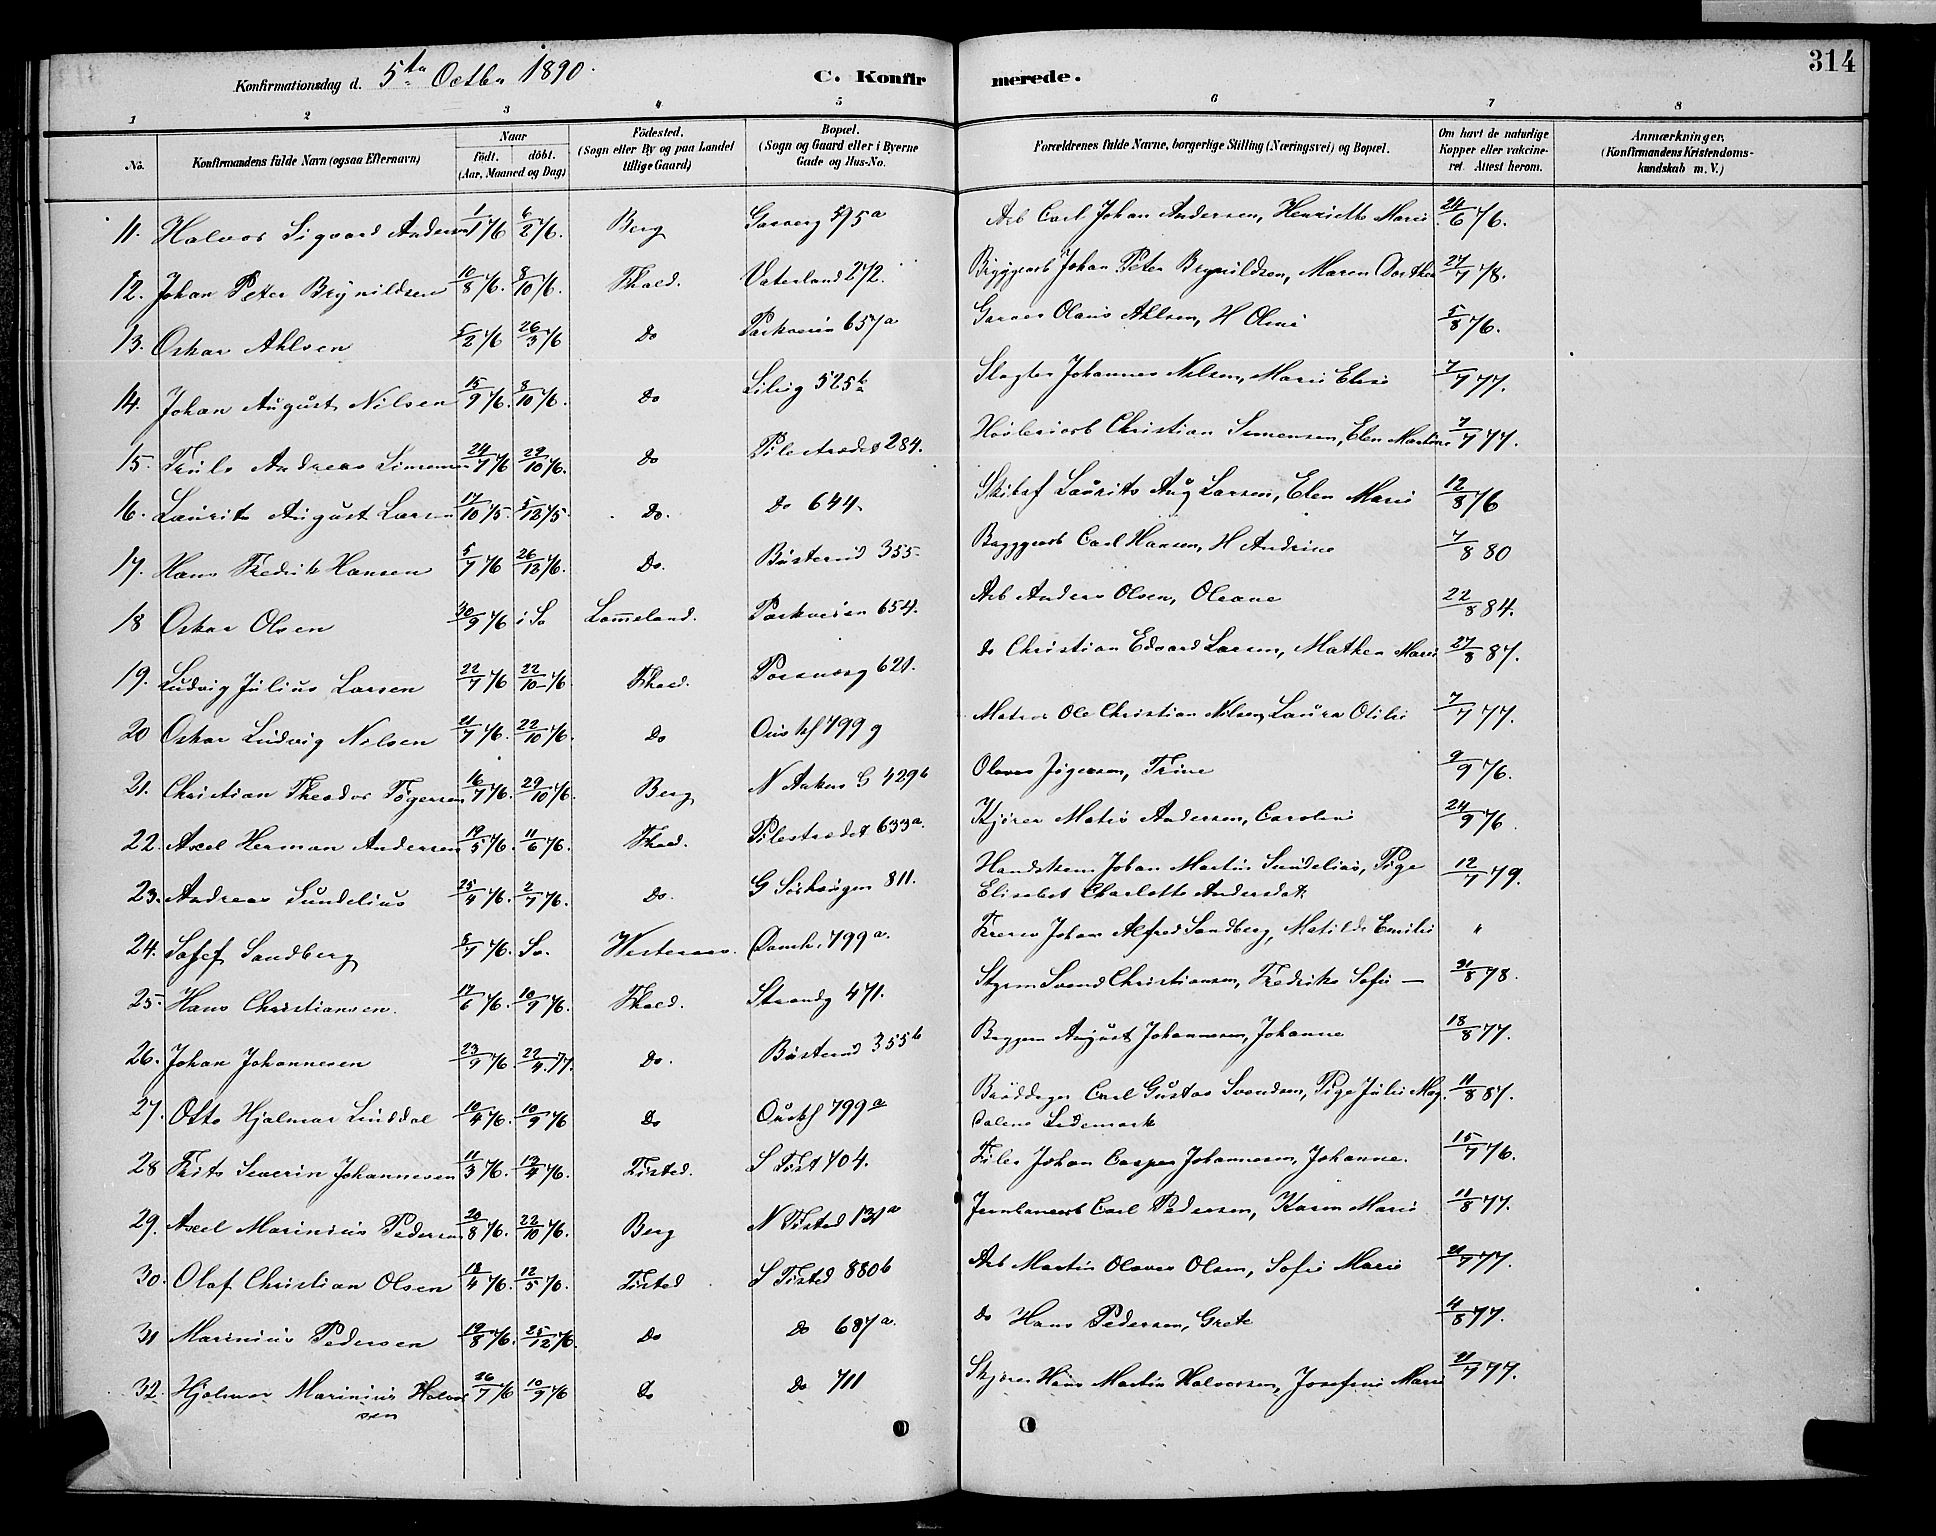 314
Konfirmationsdag d. 5te Octbr 1890. C. Konfirmerede.
1 2 3 4 5 6 7 8
No. Konfirmandens fulde Navn (ogsaa Efternavn) Naar født. døbt. (Aar, Maaned og Dag) Fødested. (Sogn eller By og paa Landet tillige Gaard) Bopæl. (Sogn og Gaard eller i Byerne Gade og Hus-No. Forældrenes fulde Navne, borgerlige Stilling (Næringsvei) og Bopæl. Om havt de naturlige Kopper eller vakcineret. Attest herom. Anmærkninger. (Konfirmandens Kristendomskundskab m. V.)
11. Halvor Sigvard Andersen 1/1 76 6/2 76. Berg 595a Arb Carl Johan Andersen, Henriette Marie 24/6 76.
12. Johan Peter Brynildsen 10/8 76. 8/10 76. Fhald. Vaterland 272. Bryggearb Johan Peter Brynildsen, Maren Dorthea 27/7 78.
13. Oskar Ahlsen 5/2 76 26/3 76 Do Parkveien 657a Garver Olaus Ahlsen, H Oline 5/8 76.
14. Johan August Nilsen 15/9 76. 8/10 76. Do 525 Slagter Johannes Nilsen, Marie Elise 7/7 77.
15. Truls Andreas Simensen 24/7 76 29/10 76. Do Pilestrædet 284. Høvleriarb Christian Simensen, Elen Martine 7/7 77.
16. Laurits August Larsen 17/10 75. 5/12 75. Do. Do 644. Skibsf Laurits Aug Larsen, Elen Marie 12/8 76
17. Hans Fredrik Hansen 5/7 76 26/12 76. Do. Busterud 355. Bryggearb Carl Hansen, H Andrine 7/8 80
18 Oskar Olsen 30/9 76 i So Lommeland. Parkveien 654. Arb Anders Olsen, Oleane 22/8 84.
19. Ludvig Julius Larsen 22/7 76 22/10 76 Fhald. 621. do Christian Edvard Larsen, Mathea Marie 27/8 87.
20 Oskar Ludvig Nilsen 21/7 76. 22/10 76. Do 799 g Matros Ole Christian Nilsen, Laura Otilie 7/7 77.
21. Christian Theodor Jøgensen 16/7 76. 29/10 76. Berg N Ankers G 429b Olaves Jøgensen, Trine 9/9 76.
22. Axel Herman Andersen 19/5 76. 11/6 76. Fhald. Pilestrædet 633a. Kjører Matis Andersen, Caroline 24/9 76.
23. Andreas Sundelius 25/4 76. 2/7 76. Do. 811. Handskem Johan Martin Sundelius, Pige Elisabet Charlotte Andersdat. 12/7 79.
24. Josef Sandberg 5/7 76. So. Westeraas. Damh. 799a. Johan Alfred Sandberg, Matilde Emilie "
25. Hans Christiansen. 17/6 76. 10/9 76. Fhald. Strandg 471. Styrm Svend Christiansen, Fredrikke Sofie — 31/8 78.
26. Johan Johannesen 23/9 76. 22/4 77. Do. Busterud 355b August Johannesen, Johanne 18/8 77.
27. Otto Hjalmar Linddal 10/4 76. 10/9 76 Do 799a Carl Gustav Svendsen, Pige Julie Magdalene Lidemark 11/8 87.
28 Frits Severin Johannesen 11/3 76. 17/4 76. Tisted. S Tist 704. Filer Johan Casper Johannesen, Johanne. 15/7 76.
29. Axel Marinius Pedersen 20/8 76. 22/10 76. Berg N Tisted 131a Jernbanearb Carl Pedersen, Karen Marie 11/8 77.
30. Olaf Christian Olsen 18/4 76. 12/5 76. Tisted S Tisted 880b Arb Martin Olaves Olsen, Sofie Marie 21/7 77.
31 Marinius Pedersen 19/8 76. 25/12 76. Do Do 687a. do Hans Pedersen, Grete 4/8 77.
32. Hjalmar Marinius Halvorsen 26/7 76 10/9 76 Do Do 711 Skjører Hans Martin Halvorsen, Josefine Marie 21/7 77.